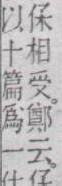 保相受。鄭云。保
以十篇爲一什